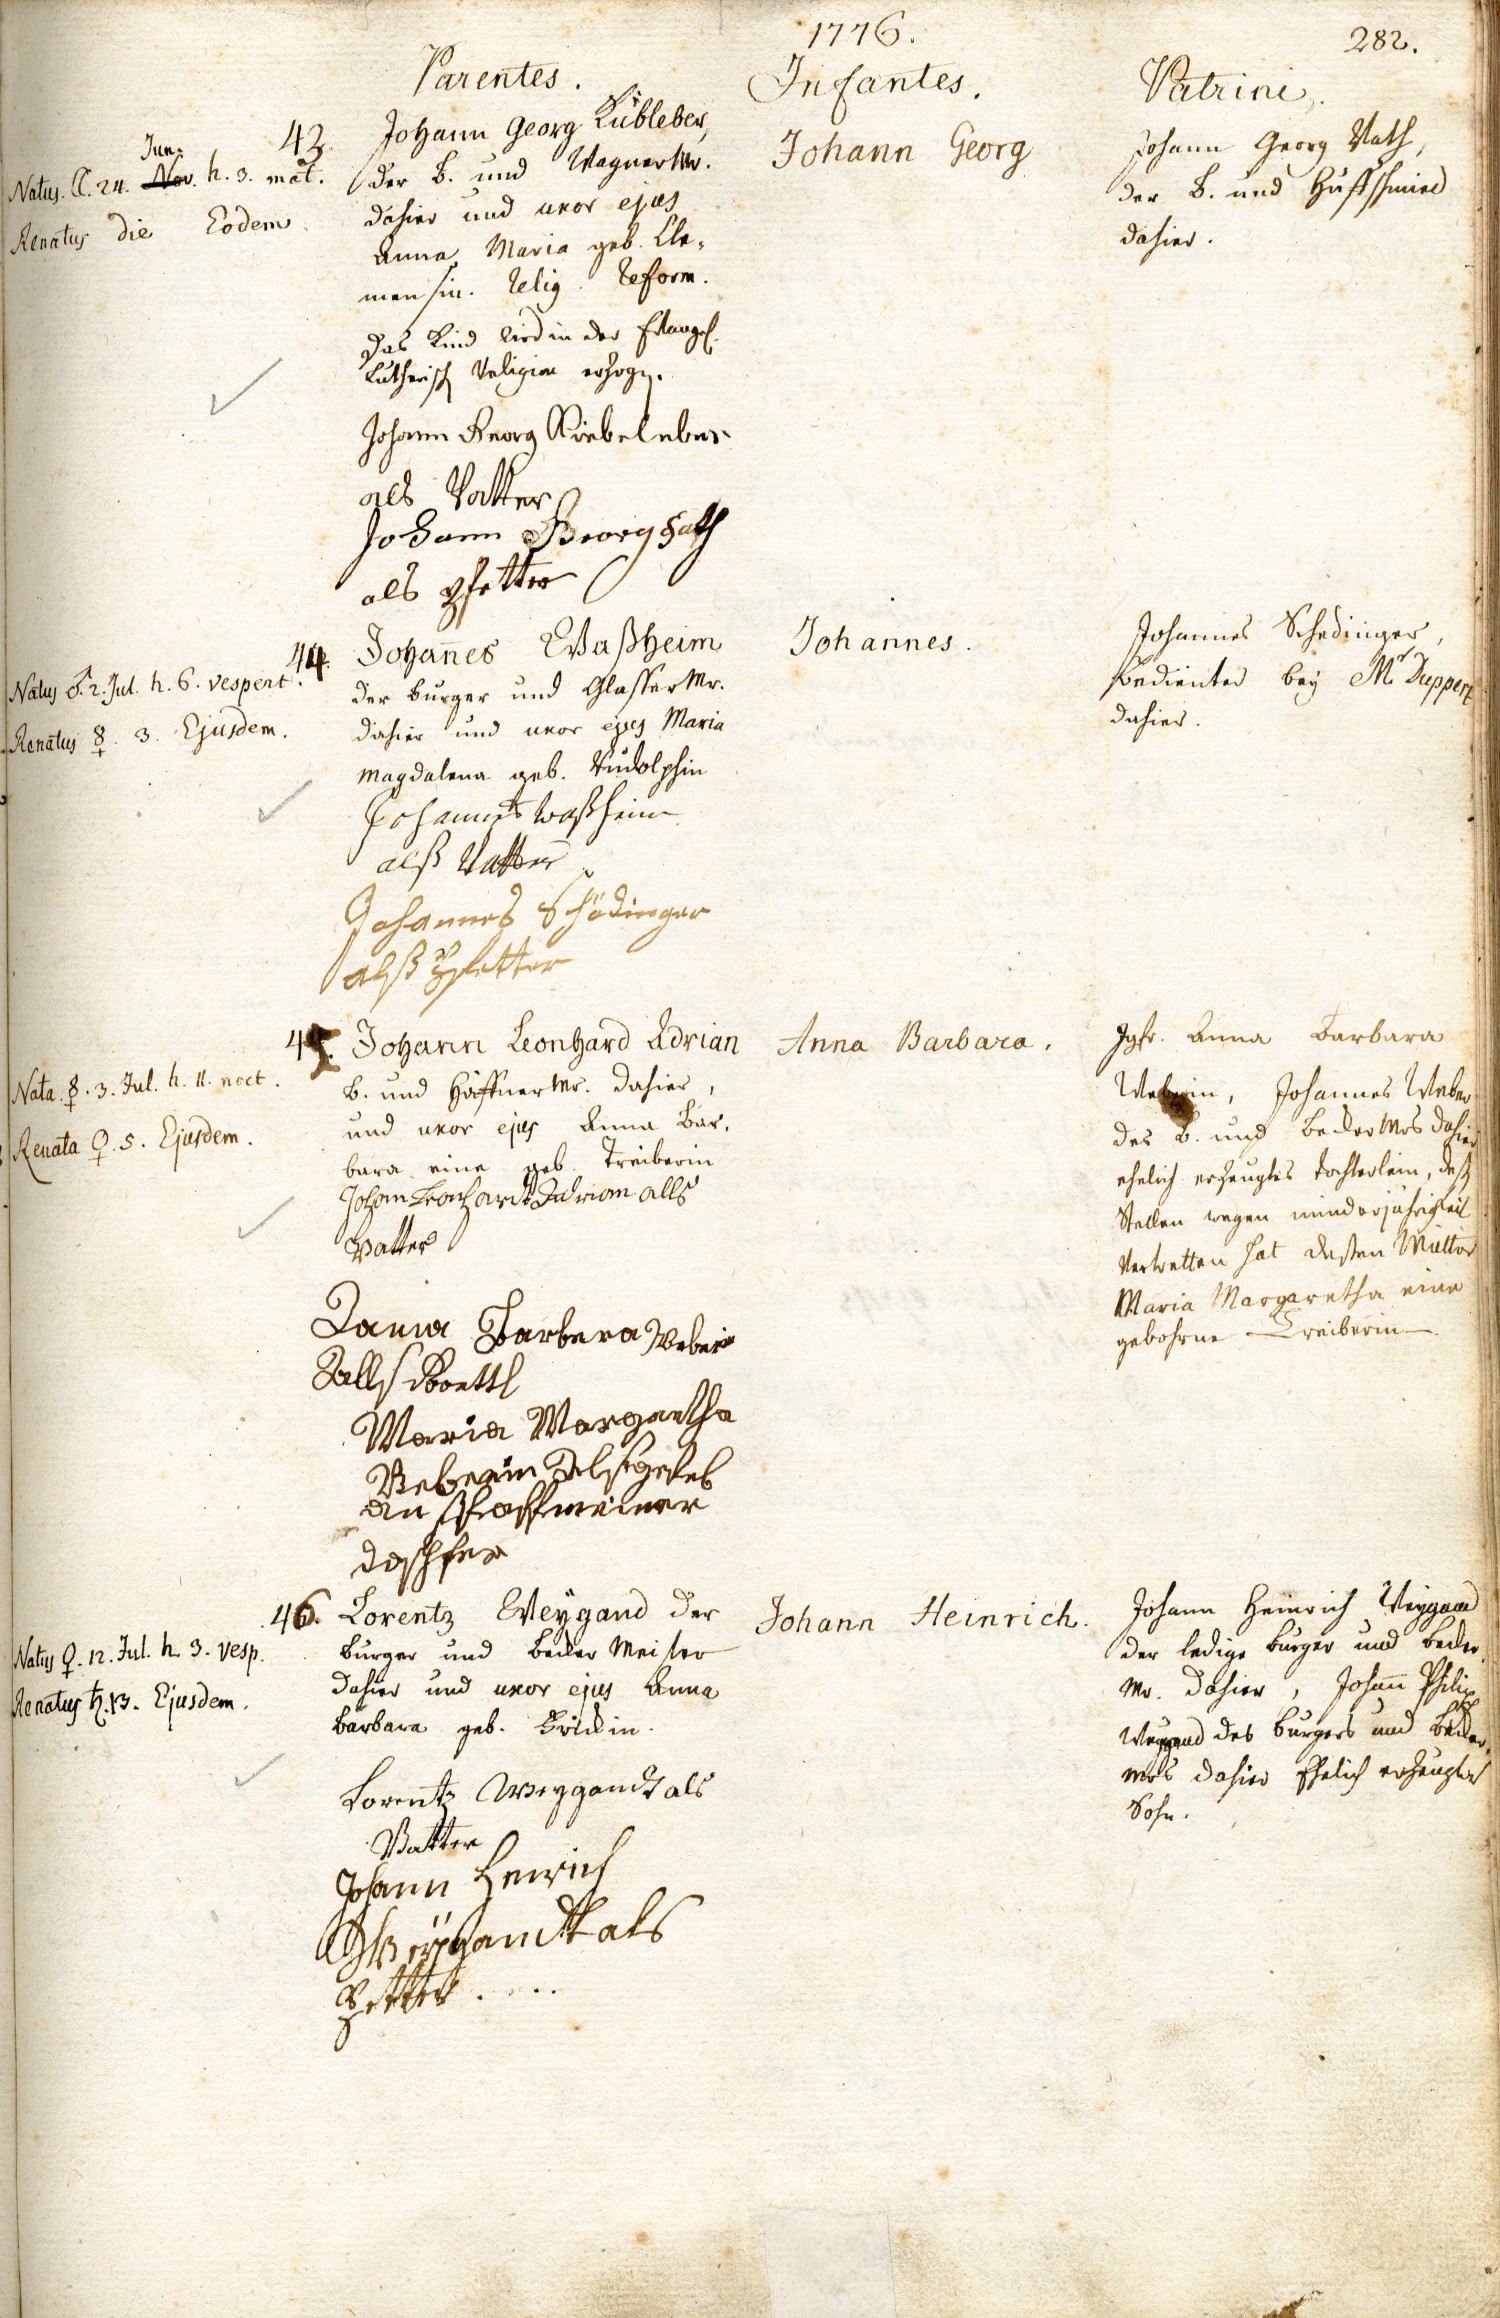 1776.
282.
Parentes.
Infantes.
Patrini.
43.
Johann Georg Kübleber,
der B. und Wagner Mr.
dahier und uxor ejus
Anna Maria geb. Cle-
mensin. Relig. Reform.
Das Kind wird in der Evangel.
Lutherisch Religion erzogn.
Johann Georg Kiebeleber
als Vatter
Johann Georg Fath
als Pfetter
Jun.
Natus. ☾. 24. Nov. h. 3. mat.
Renatus die Eodem
Johann Georg
Johann Georg Vath,
der B. und Huffschmied
dahier.
44.
Johannes Waßheim
der burger und Glasser Mr.
dahier und uxor ejus Maria
Magdalena geb. Rudolphin
Johannes Waßheim
alß Vatter
Johannes Schödinger
alß Pfetter
Natus ♂. 2. Jul. h. 6. vespert.
Renatus ☿. 3. Ejusdem.
Johannes.
Johannes Schedinger,
bedienter bey Mr Duppert
dahier.
45.
Johann Leonhard Adrian
B. und Häffner Mr. dahier,
und uxor ejus Anna Bar-
bara eine geb. Treiberin
Johan Leonhardt Adrian alls
Vatter
Anna Barbera Weberin
Alls
Maria Margaretha
Weberin
an
Nata. ☿. 3. Jul. h. 11. noct.
Renata ♀. 5. Ejusdem.
Anna Barbara.
Jgfr. Anna Barbara
Weberin, Johannes Weber
des B. und Becker Mrs dahier
ehelich erzeugtes tochterlein, deß
Stellen wegen minderjährigkeit
Vertretten hat dessen Mutter
Maria Margaretha eine
gebohrne Treiberin.
46.
Lorentz Weÿgand der
burger und Becker Meister
dahier und uxor ejus Anna
Barbara geb.
Lorentz Weygandt als
Vatter
Johann Henrich
Weÿgandt als
Petter
Natus ♀. 12. Jul. h. 3. vesp.
Renatus ♄. 13. Ejusdem.
Johann Heinrich.
Johann Heinrich Weygand
der ledige burger und becker
Mr. dahier, Johann Philip
Weygand des burgers und Becker
Mrs dahier Ehelich erzeugter
Sohn.